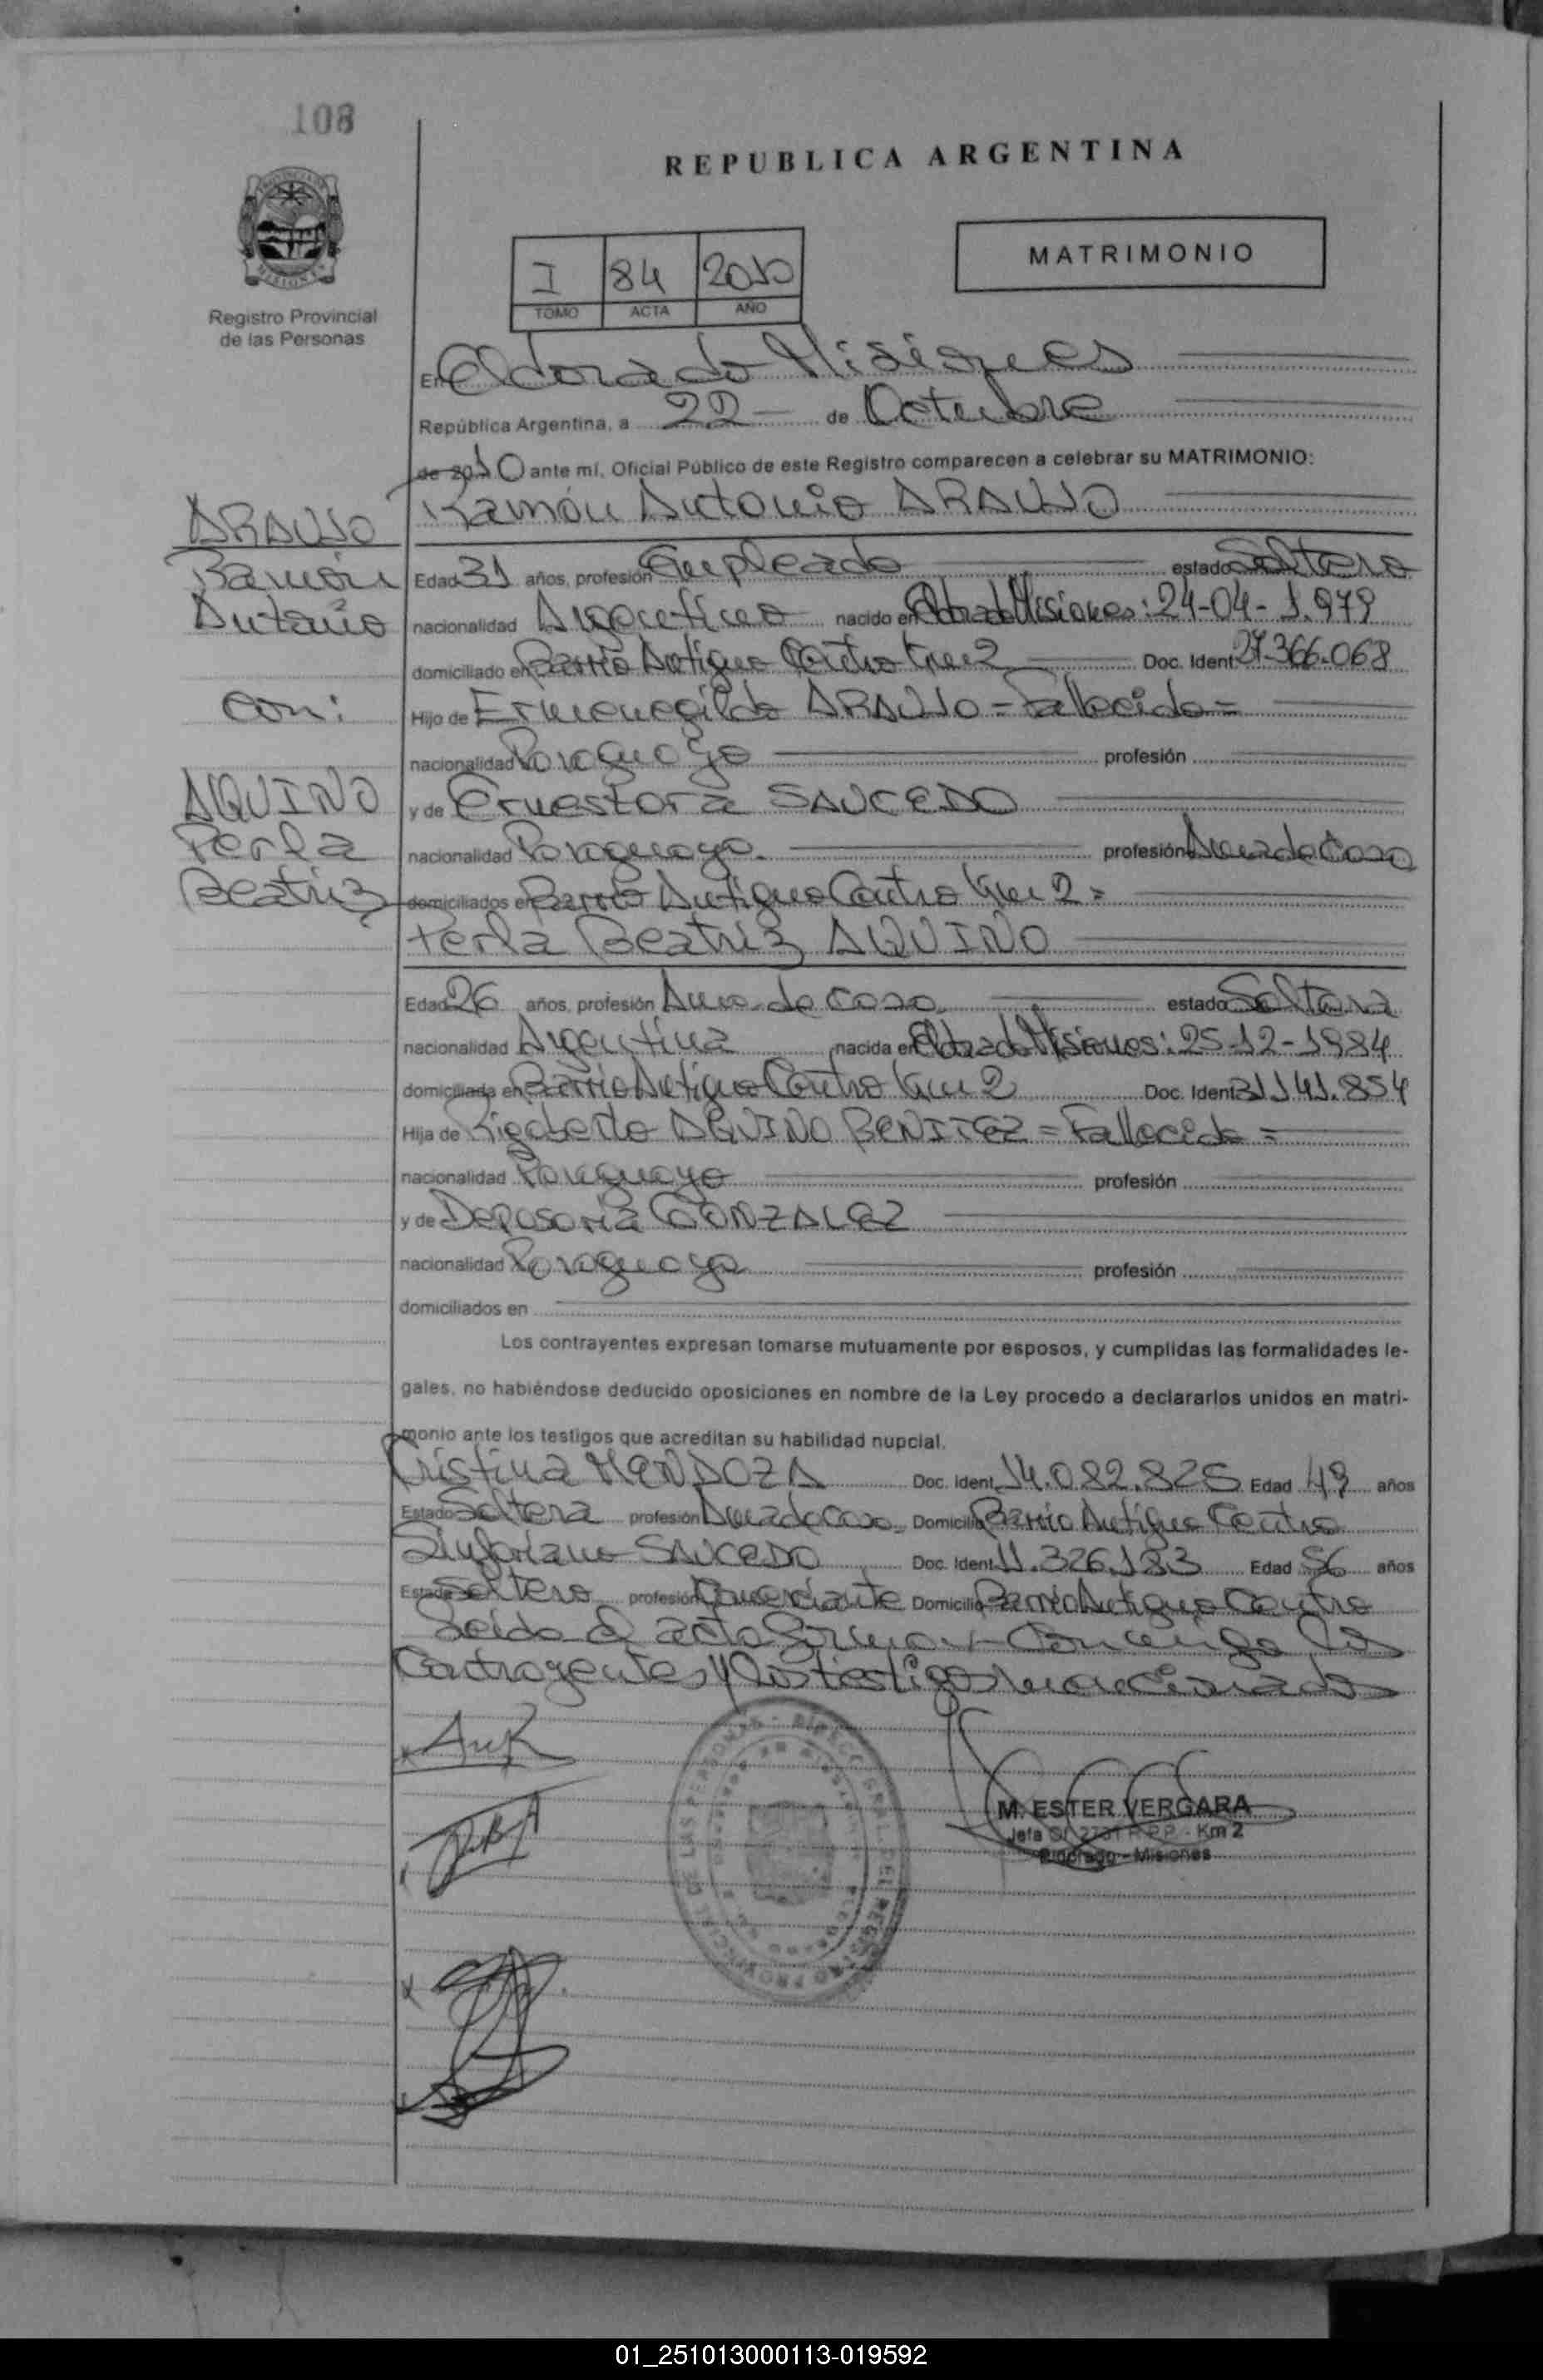 108
REPUBLICA ARGENTINA
MATRIMONIO
I 84 2010
TOMO ACTA AÑO
Registro Provincial
de las Personas
En Eldorado Misiones
República Argentina, a 22 de Octubre
de 2010 ante mí, Oficial Público de este Registro comparecen a celebrar su MATRIMONIO:
Ramón Antonio ARAUJO
ARAUJO
Ramón
Antonio
con:
AQUINO
Perla
Beatriz
Edad 31 años, profesión Empleado estado Soltero
nacionalidad Argentino nacido en Eldorado Misiones: 24-04-1.979
domiciliado en Barrio Antiguo Centro Km 2 Doc. Ident. 27.366.068
Hijo de Ermenegildo ARAUJO = Fallecido =
nacionalidad Paraguayo profesión
y de Ernestora SAUCEDO
nacionalidad Paraguaya. profesión Ama de Casa
domiciliados en Barrio Antiguo Centro Km 2 =
Perla Beatriz AQUINO
Edad 26 años, profesión Ama de casa estado Soltera
nacionalidad Argentina nacida en Eldorado Misiones: 25-12-1984
domiciliada en Barrio Antiguo Centro Km 2 Doc. Ident. 31.141.854
Hija de Rigoberto AQUINO BENITEZ = Fallecido =
nacionalidad Paraguayo profesión
y de Deposoria GONZALEZ
nacionalidad Paraguaya profesión
domiciliados en
Los contrayentes expresan tomarse mutuamente por esposos, y cumplidas las formalidades le-
gales, no habiéndose deducido oposiciones en nombre de la Ley procedo a declararlos unidos en matri-
monio ante los testigos que acreditan su habilidad nupcial.
Cristina MENDOZA Doc. Ident. 14.082.825 Edad 49 años
Estado Soltera profesión Ama de Casa Domicilio Barrio Antiguo Centro
Sinforiano SAUCEDO Doc. Ident. 11.326.183 Edad 56 años
Estado Soltero profesión Comerciante Domicilio Barrio Antiguo Centro
Leido el acta firman Conmigo los
Contrayentes y los testigos mencionados
M. ESTER VERGARA
Jefa Of. 2731 R.P.P. - Km 2
Eldorado - Misiones
01_251013000113-019592